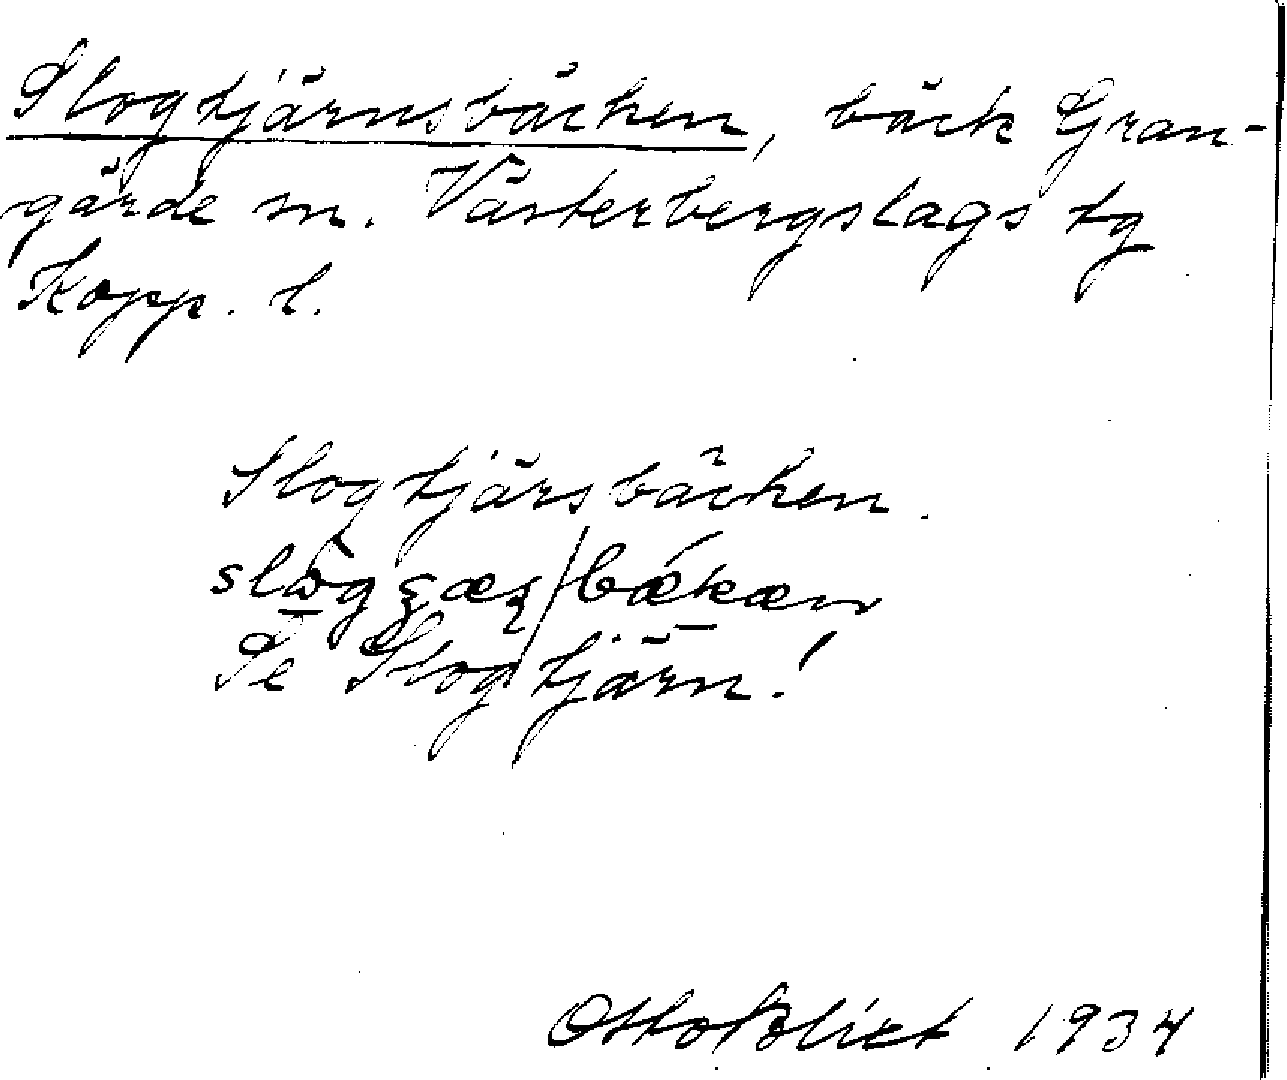 Slogtjärnsbäcken, bäck Gran-
gärde sn. Västerbergslags tg
Kopp. l.
Slogtjärsbäcken.
Se Slogtjärn!
Otto Blixt 1934